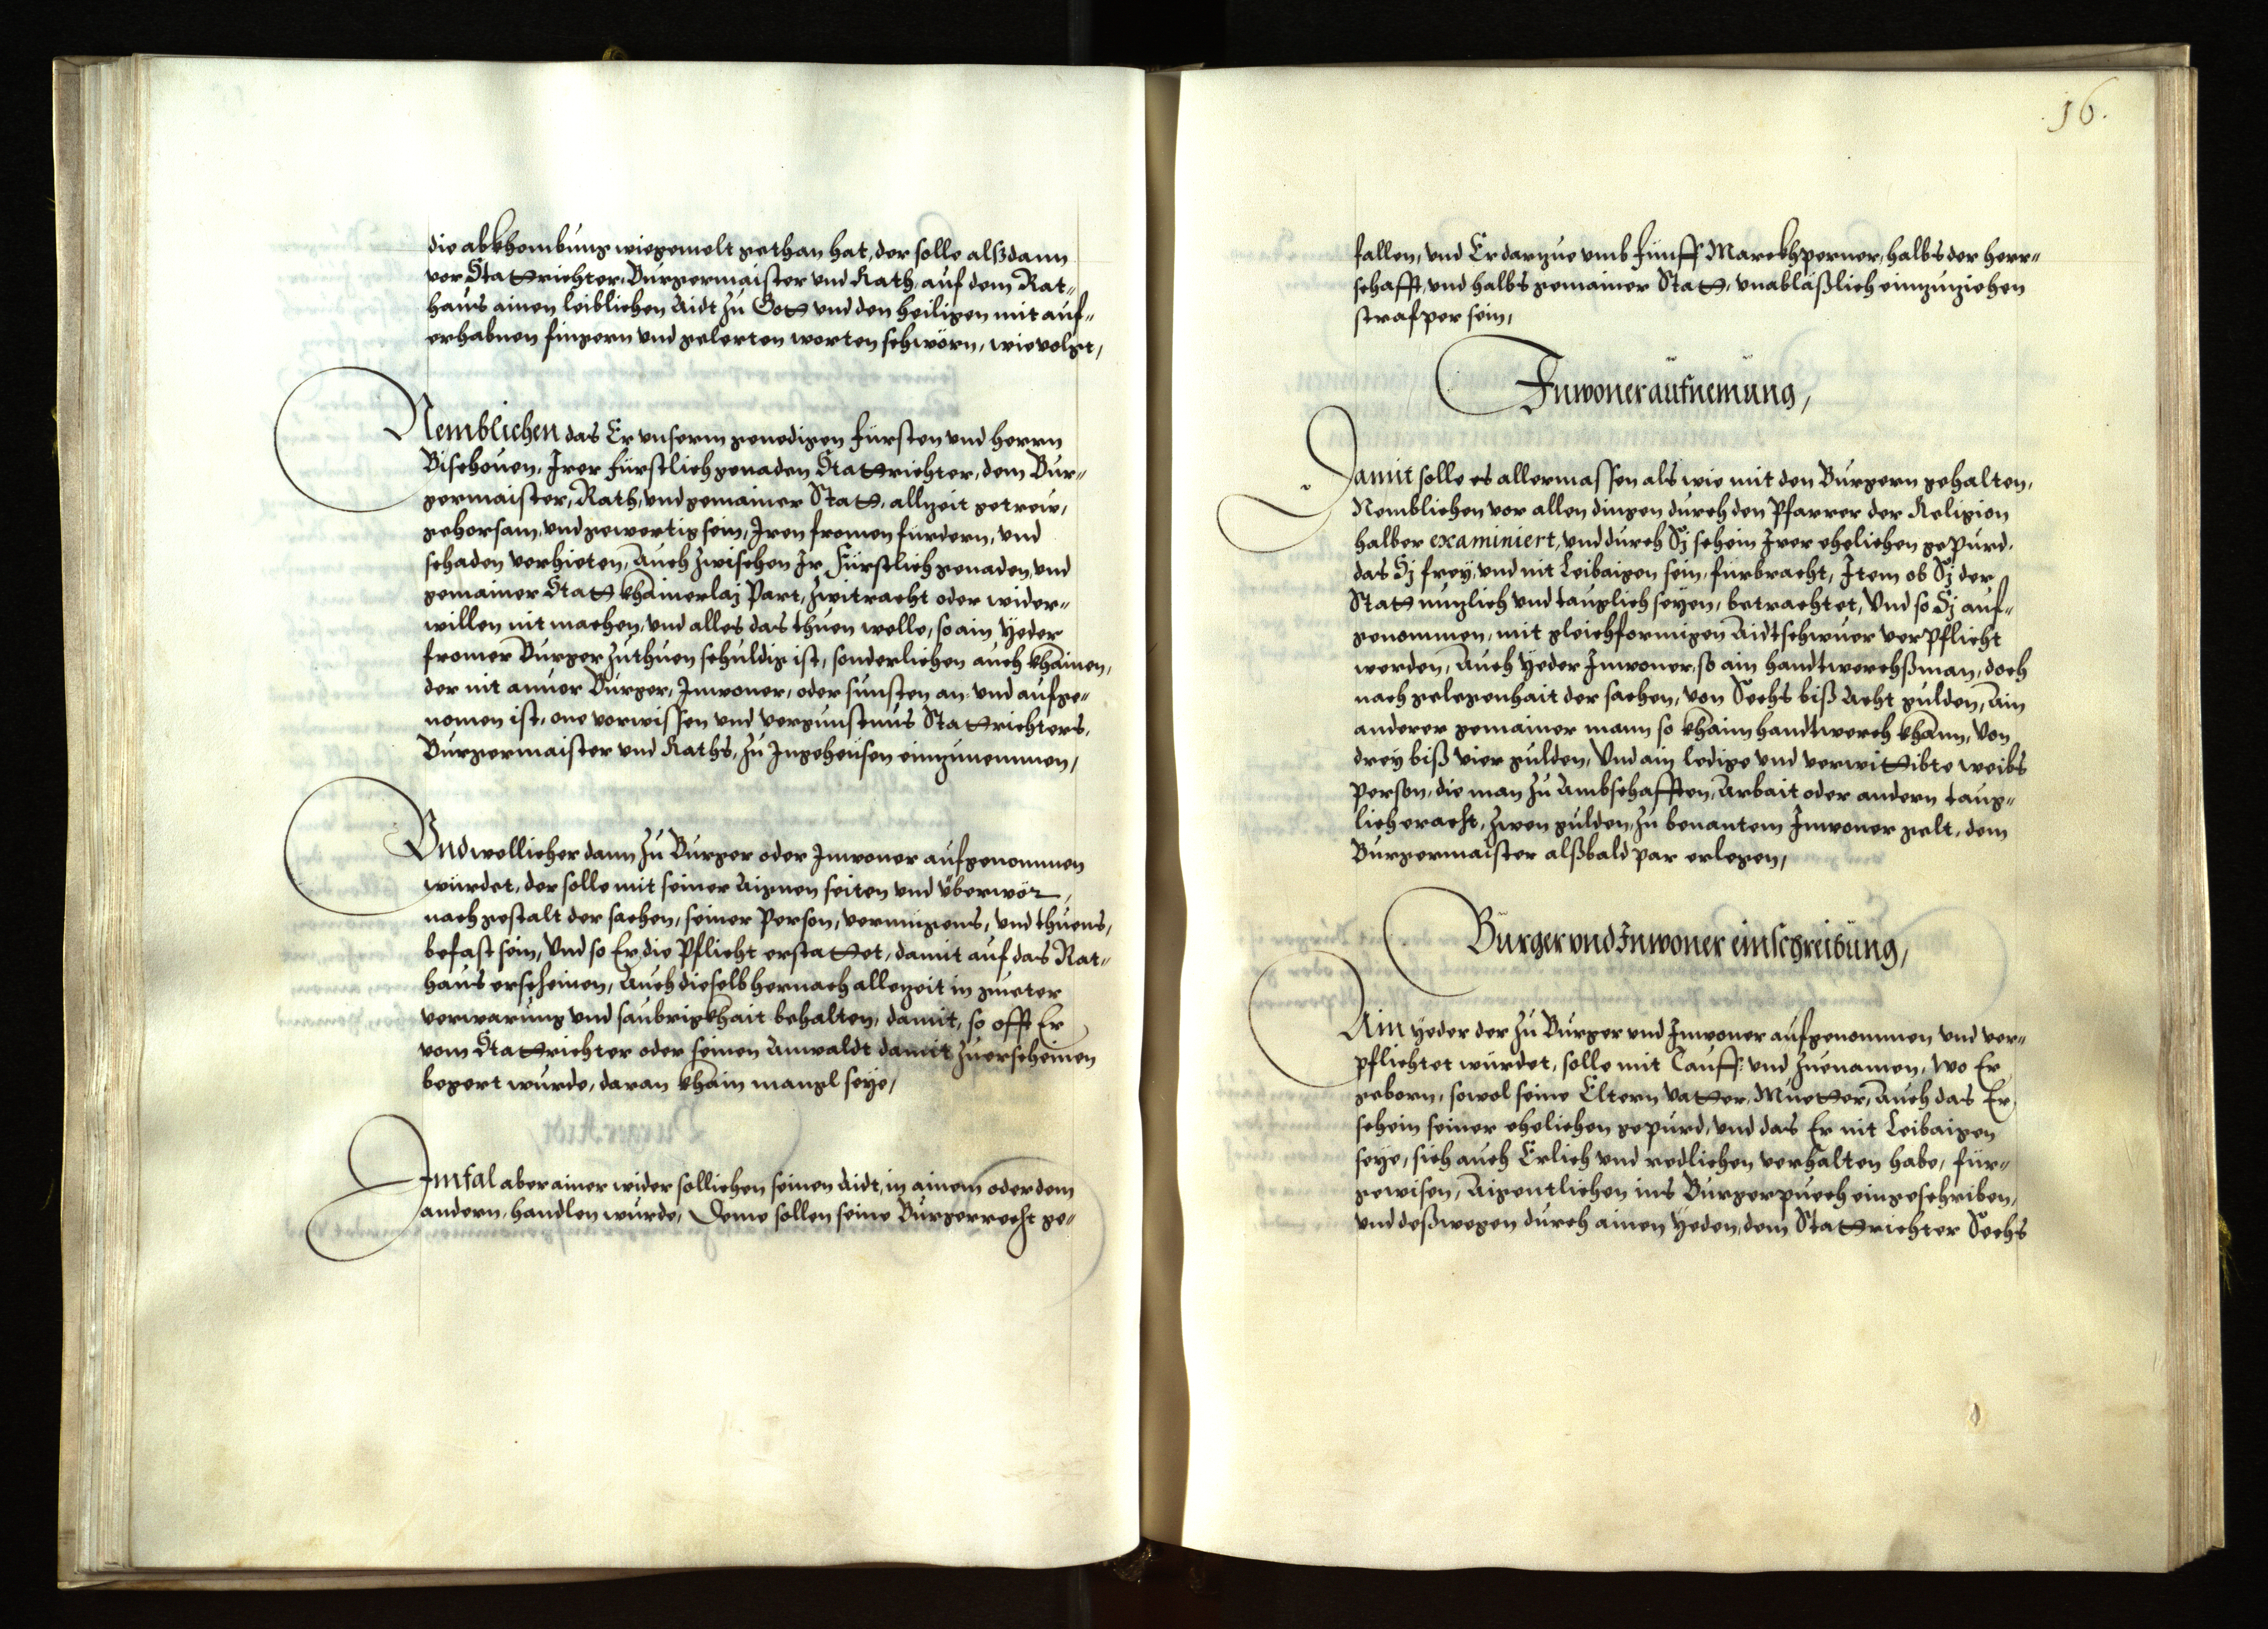 die abkhombung wie gemelt gethan hat, der solle alßdann
vor Stattrichter, Burgermaister und Rath, auf dem Rat„
haus ainen leiblichen Aidt zu Gott und den heiligen mit auf„
erhabnen fingern und gelerten worten schwörn, wie volgt,
Nemblichen das Er unserm genedigen Fürsten und herrn
Bischouen, Irer Fürstlich genaden Stattrichter, dem Bur„
germaister, Rath, und gemainer Statt, allzeit getrew,
gehorsam, und gewertig sein, Iren fromen fürdern, und
schaden verhieten, Auch zwischen Ir Fürstlich genaden, und
gemainer Statt khainerlaj Part, zwitracht oder wider„
willen nit machen, und alles das thuen welle, so ain Yeder
fromer Burger zuthuen schuldig ist, sonderlichen auch khainen,
der nit anuor Burger, Inwoner, oder sunsten an- und aufge„
nomen ist, one vorwissen und vergunstnus Stattrichters,
Burgermaister und Raths, zu Ingeheusen einzunemmen,
Vnd wellicher dann zu Burger oder Inwoner aufgenommen
würdet, der solle mit seiner Aignen seiten und überwör,
nach gestalt der sachen, seiner Person, vermügens, und thuens,
befast sein, Und so Er die Pflicht erstattet, damit auf das Rat„
haus erscheinen, Auch dieselb hernach allezeit in gueter
verwarung und saubrigkhait behalten, damit, so offt Er
vom Stattrichter oder seinen Anwaldt damit zuerscheinen
begert wurde, daran khain mangl seye,
Im fal aber ainer wider sollichen seinen Aidt, in ainem oder dem
andern, handlen wurde, Deme sollen seine Burgerrecht ge„
16.
fallen, und Er darzue umb Fünff Marckh perner, halbs der herr„
schafft, und halbs gemainer Statt, unabläßlich einzuziehen
strafper sein,
Inwoner aufnemung,
Damit solle es allermassen als wie mit den Burgern gehalten,
Nemblichen vor allen dingen durch den Pfarrer der Religion
halber examiniert, und durch Sj schein Irer ehelichen gepurd,
das Sj frey, und nit Leibaigen sein, fürbracht, Item ob Sj der
Statt nuzlich und tauglich seyen, betrachtet, Und so Sj auf„
genommen, mit gleichformigen Aidtschwuer verpflicht
werden, Auch Yeder Inwoner, so ain handtwerchßman, doch
nach gelegenhait der sachen, von Sechs biß Acht gulden, Ain
anderer gemainer mann so khain handtwerch khann, von
drey biß vier gulden, Und ain ledige und verwittibte weibs
Person, die man zu Ambschafften, Arbait oder andern taug„
lich eracht, zwen gulden, zu benantem Inwoner gelt, dem
Burgermaister alßbald par erlegen,
Burger und Inwoner einschreibung,
Ain Yeder der zu Burger und Inwoner aufgenommen und ver„
pflichtet würdet, solle mit Tauff- und zuenamen, wo Er
geborn, sowol seine Eltern Vatter, Muetter, Auch das Er
schein seiner ehelichen gepurd, und das Er nit Leibaigen
seye, sich auch Erlich und redlichen verhalten habe, für„
gewisen, Aigentlichen ins Burgerpuech eingeschriben,
und deßwegen durch ainen Yeden, dem Stattrichter Sechs